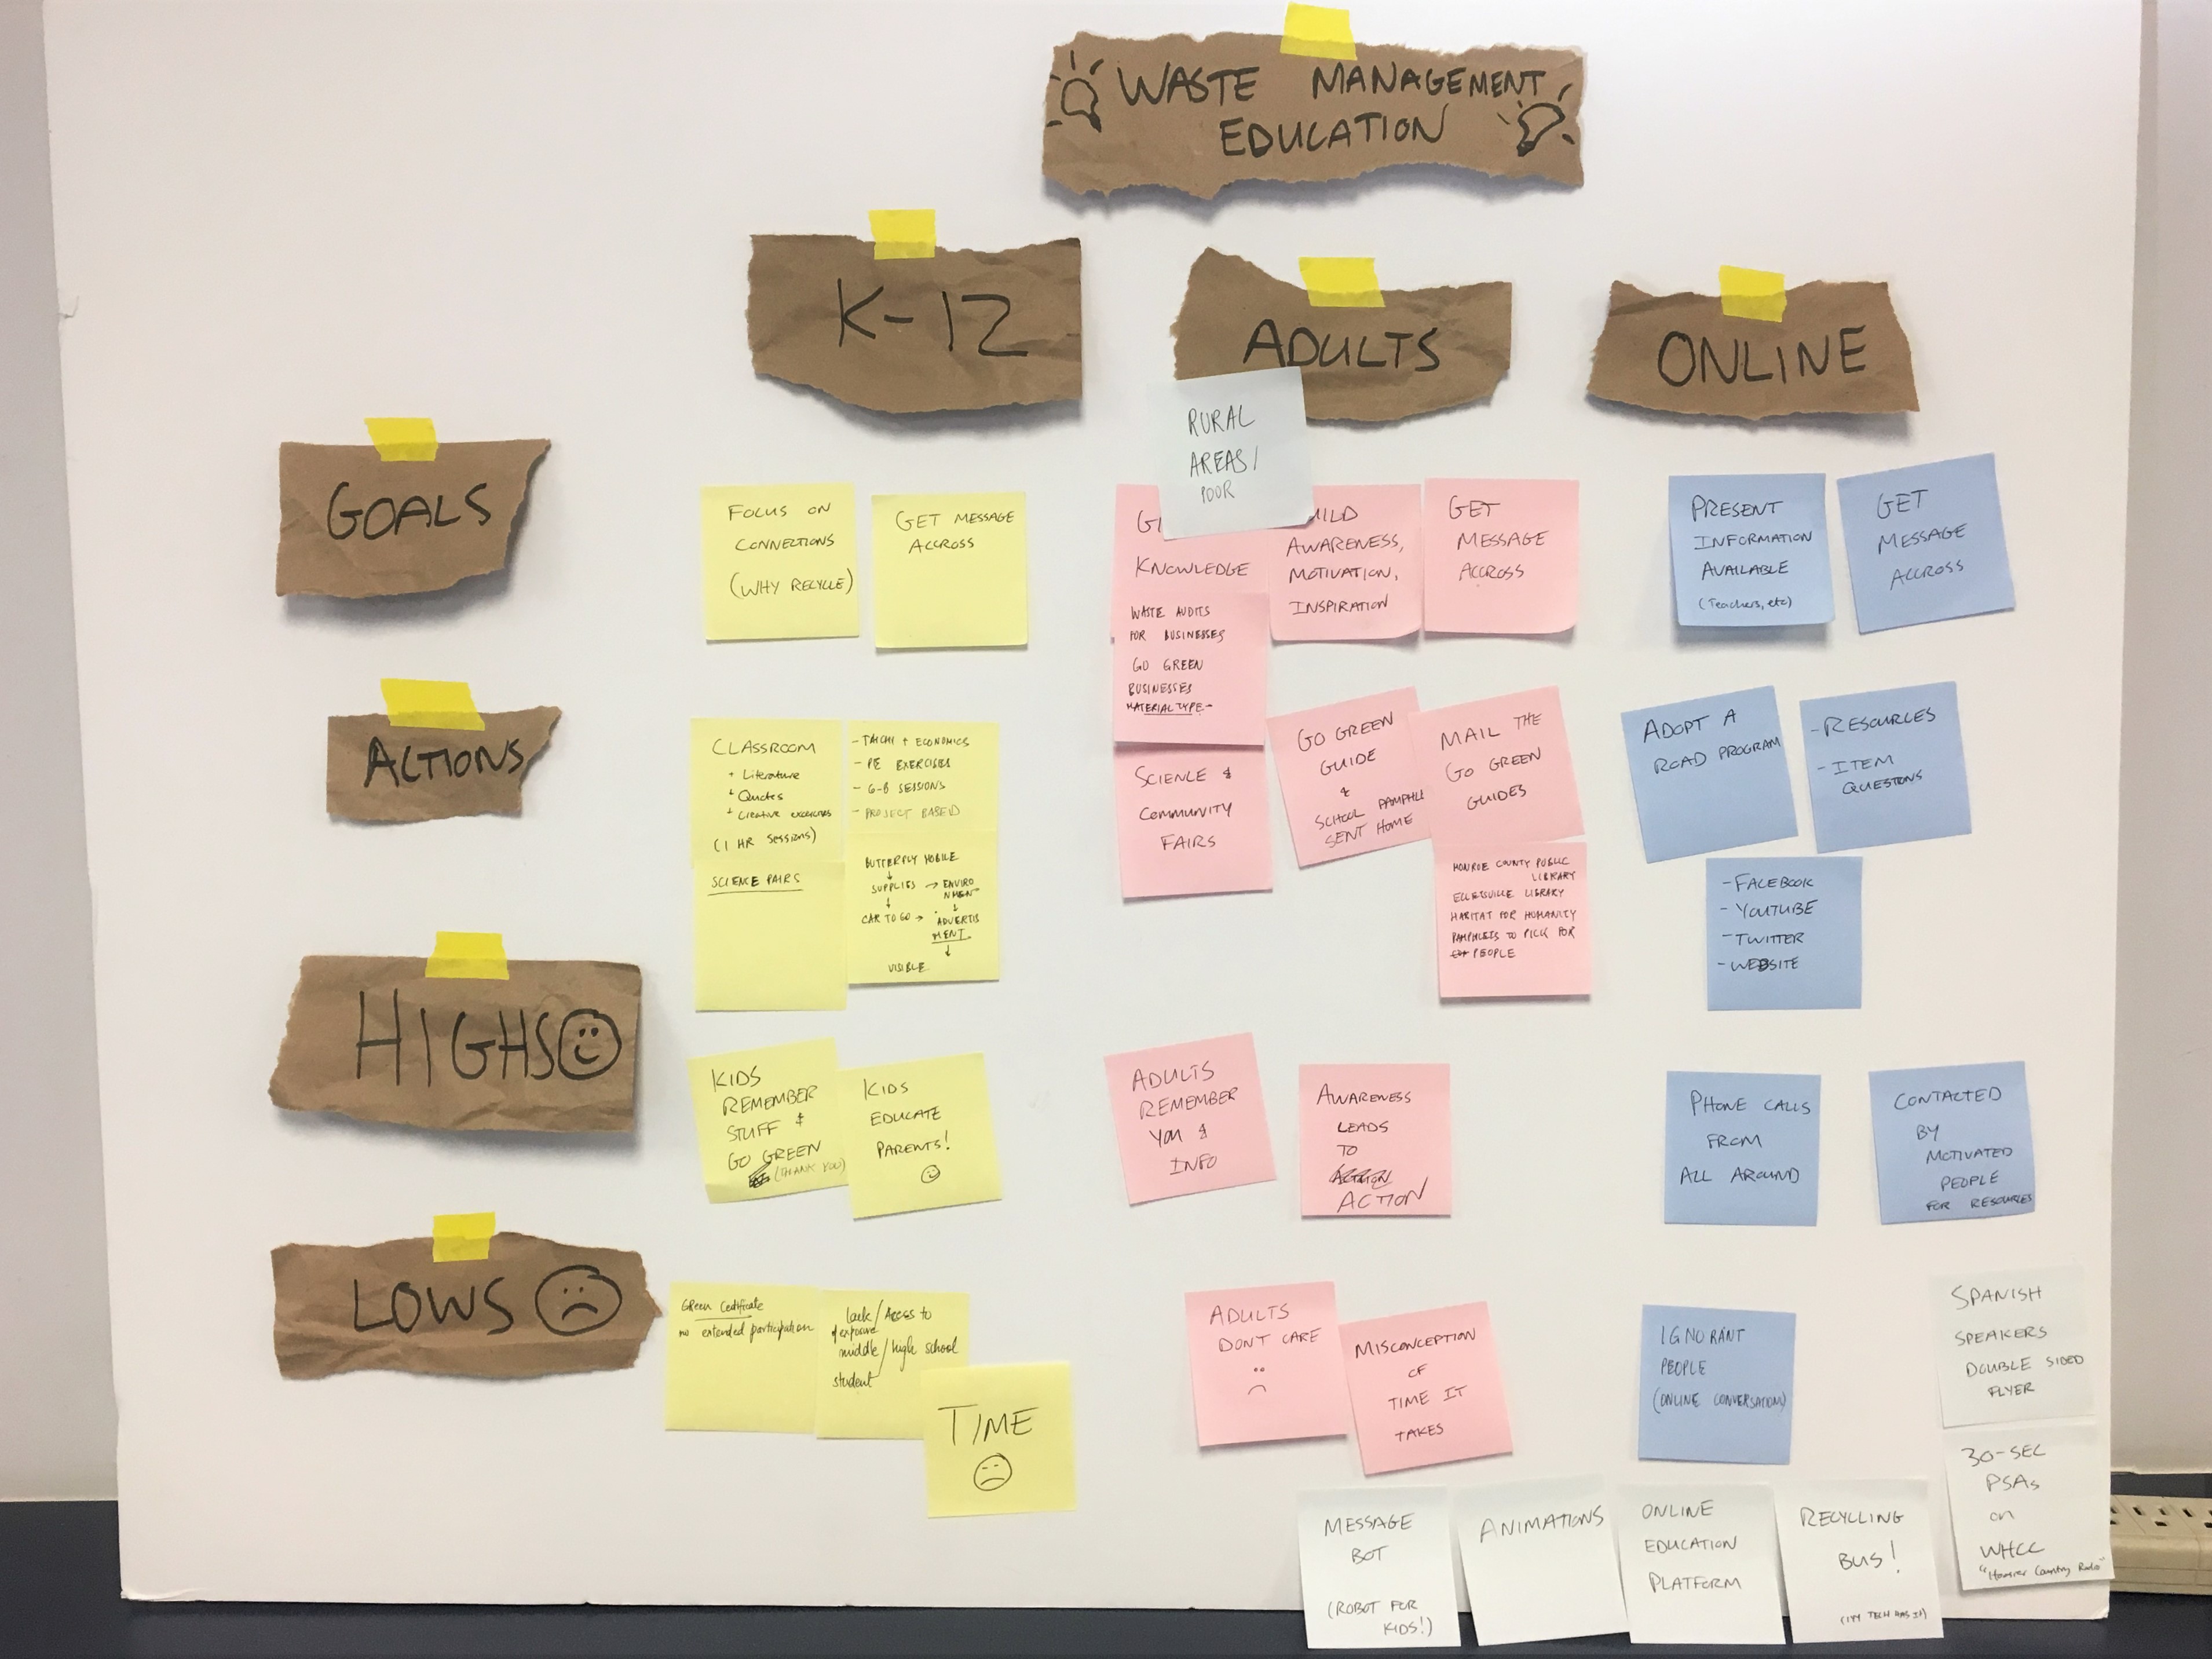 WASTE MANAGEMENT
EDUCATION
K-12
ADULTS
ONLINE
RURAL
AREAS/
POOR
GOALS
FOCUS ON
CONNECTIONS
(WHY RECYCLE)
GET MESSAGE
ACCROSS
KNOWLEDGE
AWARENESS,
MOTIVATION,
INSPIRATION
GET
MESSAGE
ACCROSS
PRESENT
INFORMATION
AVAILABLE
(Teachers, etc)
GET
MESSAGE
ACCROSS
WASTE AUDITS
FOR BUSINESSES
GO GREEN
BUSINESSES
MATERIAL TYPE-
ACTIONS
CLASSROOM
+ Literature
+ Quotes
+ Creative exercises
(1 HR SESSIONS)
- TAICHI + ECONOMICS
- PE EXERCISES
- 6-8 SESSIONS
- PROJECT BASED
SCIENCE FAIRS
BUTTERFLY MOBILE
↓
SUPPLIES → ENVIRO
NMENT
↓ ↓
CAR TO GO → ADVERTIS
MENT
↓
VISIBLE
SCIENCE &
Community
FAIRS
GO GREEN
GUIDE
&
SCHOOL PAMPHLE
SENT HOME
MAIL THE
GO GREEN
GUIDES
MONROE COUNTY PUBLIC
LIBRARY
ELLETSVILLE LIBRARY
HABITAT FOR HUMANITY
PAMPHLETS TO PICK FOR
PEOPLE
ADOPT A
ROAD PROGRAM
- RESOURCES
- ITEM
QUESTIONS
- FACEBOOK
- YOUTUBE
- TWITTER
- WEBSITE
HIGHS
KIDS
REMEMBER
STUFF &
GO GREEN
(THANK YOU)
KIDS
EDUCATE
PARENTS!
ADULTS
REMEMBER
YOU &
INFO
AWARENESS
LEADS
TO
ACTION
PHONE CALLS
FROM
ALL AROUND
CONTACTED
BY
MOTIVATED
PEOPLE
FOR RESOURCES
LOWS
Green Certificate
no extended participation
lack/Acess to
of exposure
middle/high school
student
TIME
ADULTS
DONT CARE
MISCONCEPTION
OF
TIME IT
TAKES
IGNORANT
PEOPLE
(ONLINE CONVERSATION)
SPANISH
SPEAKERS
DOUBLE SIDED
FLYER
30-SEC
PSAs
on
WHCC
"Hoosier Country Radio"
MESSAGE
BOT
(ROBOT FOR
KIDS!)
ANIMATIONS
ONLINE
EDUCATION
PLATFORM
RECYCLING
BUS!
(IVY TECH HAS IT)